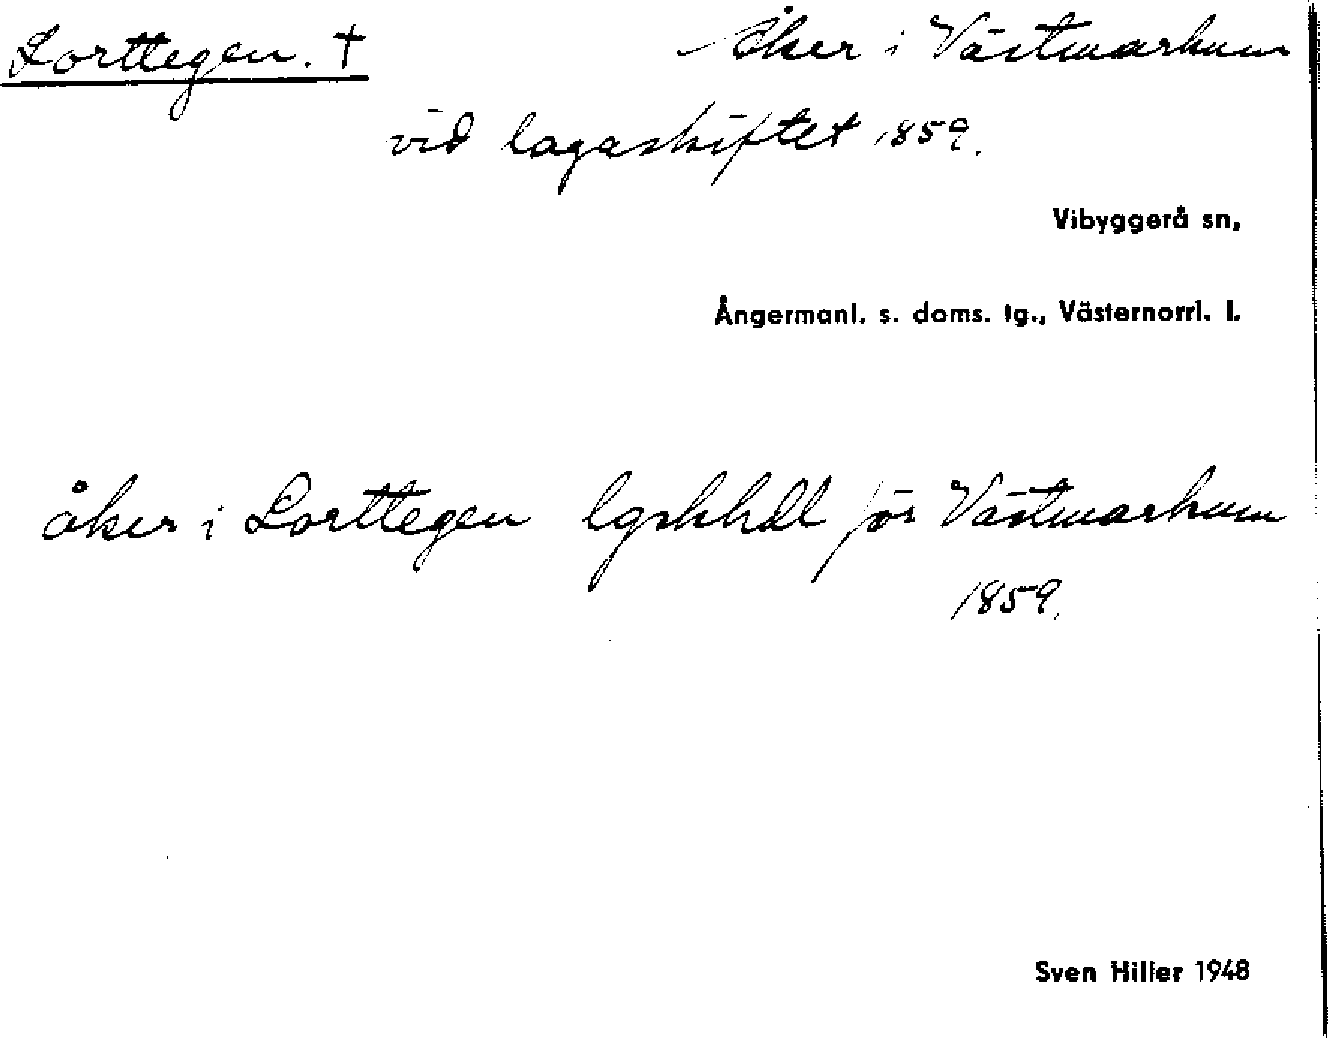 Lorttegen. † åker i Västmarkum
vid lagaskiftet 1859.
Vibyggerå sn,
Ångermanl. s. doms. tg., Västernorrl. l.
åker i Lorttegen lgskhdl för Västmarkum
1859.
Sven Hiller 1948